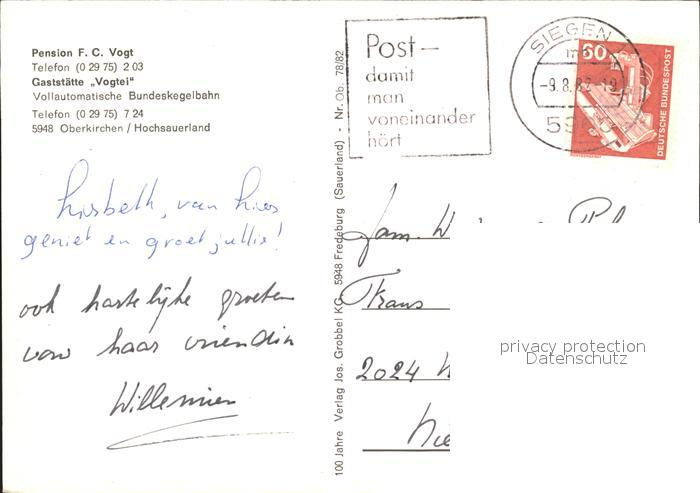 Pension F. C. Vogt
Telefon (0 29 75) 2 03
Gaststätte „Vogtei"
Vollautomatische Bundeskegelbahn
Telefon (0 29 75) 7 24
5948 Oberkirchen / Hochsauerland
geniet en groet jullie!
ook hartelijke groeten
van haar vriendin
Willemien
100 Jahre Verlag Jos. Grobbel KG, 5948 Fredeburg (Sauerland) - Nr. Ob. 78/82
Post –
damit
man
voneinander
hört
SIEGEN
-9.8.82-19
60
DEUTSCHE BUNDESPOST
Fam. W
2024
privacy protection
Datenschutz